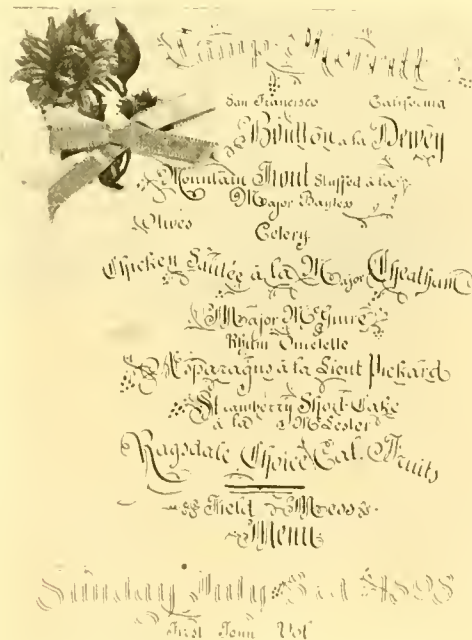 Camp Merritt
San Francisco California
Boullon a la Dewey
Mountain Trout Stuffed á la
Major Bayless
Olives
Celery
Chicken Sautée à la Major Cheatham
Major McGuire
Rhum Omelette
Asparagus à la Lieut Pickard
Strawberry Short-Cake
à la McLester
Ragsdale Choice Cal. Fruits
Field Mess
Menu
First Tenn Vol